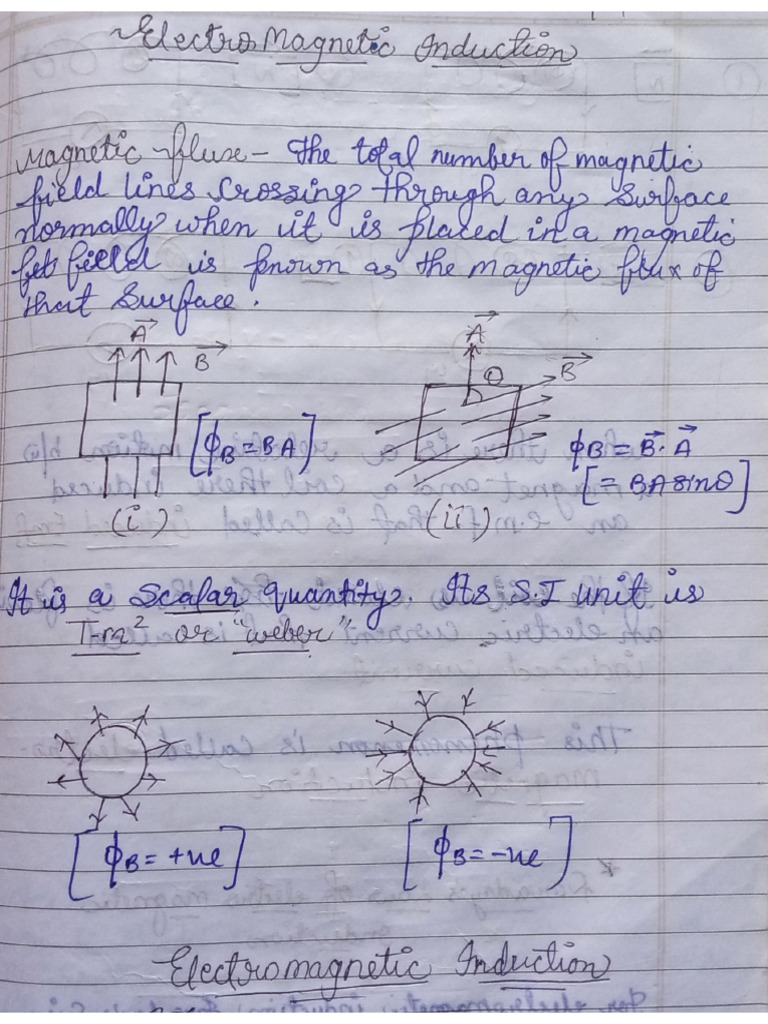 ElectroMagnetic Induction
Magnetic flux - The total number of magnetic
field lines crossing through any surface
normally when it is placed in a magnetic
field is known as the magnetic flux of
that surface.
A B
A θ B
[ϕB = BA]
ϕB = B.A
[= BA sinθ]
(i) (ii)
It is a scalar quantity. Its S.I unit is
T-m² or "weber"
[ϕB = +ve] [ϕB = -ve]
Electromagnetic Induction